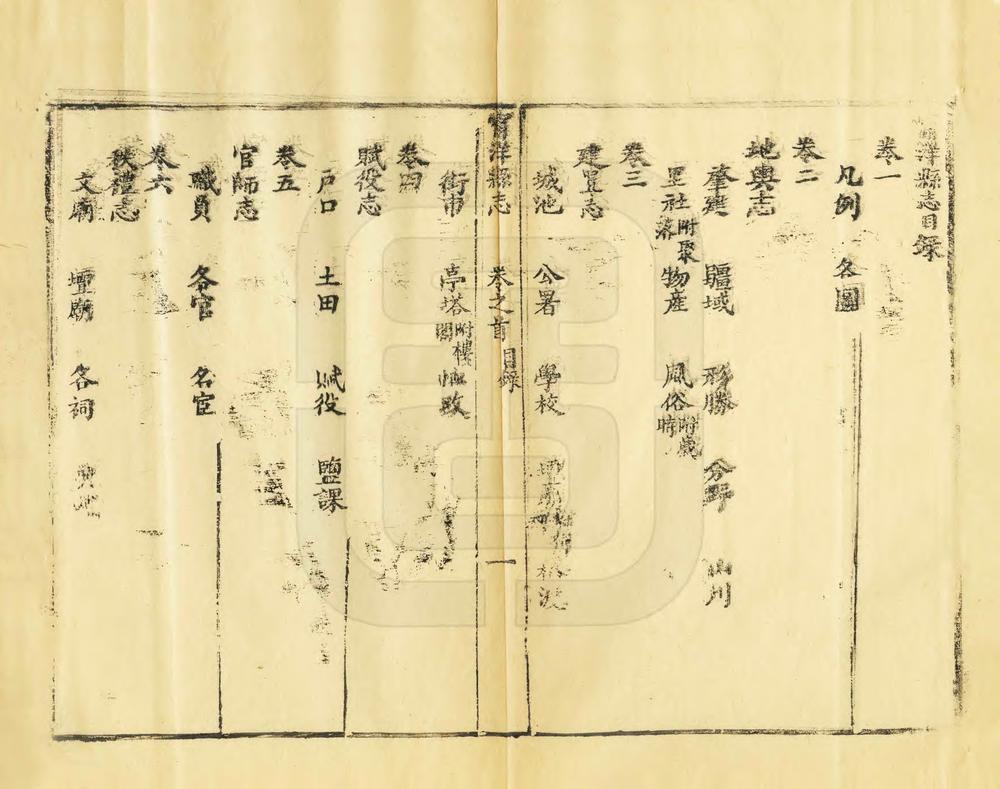 洋縣志目錄
卷一
凡例 各圖
卷二
地輿志
肇建 疆域 形勝 分野 山川
里社附聚落 物產 風俗附歲時
卷三
建置志
城池 公署 學校
洋縣志 卷之首 目錄 一
街市 亭塔附樓閣 恤政
卷四
賦役志
戶口 土田 賦役 鹽課
卷五
官師志
職員 各官 名宦
卷六
秩禮志
文廟 壇廟 各祠